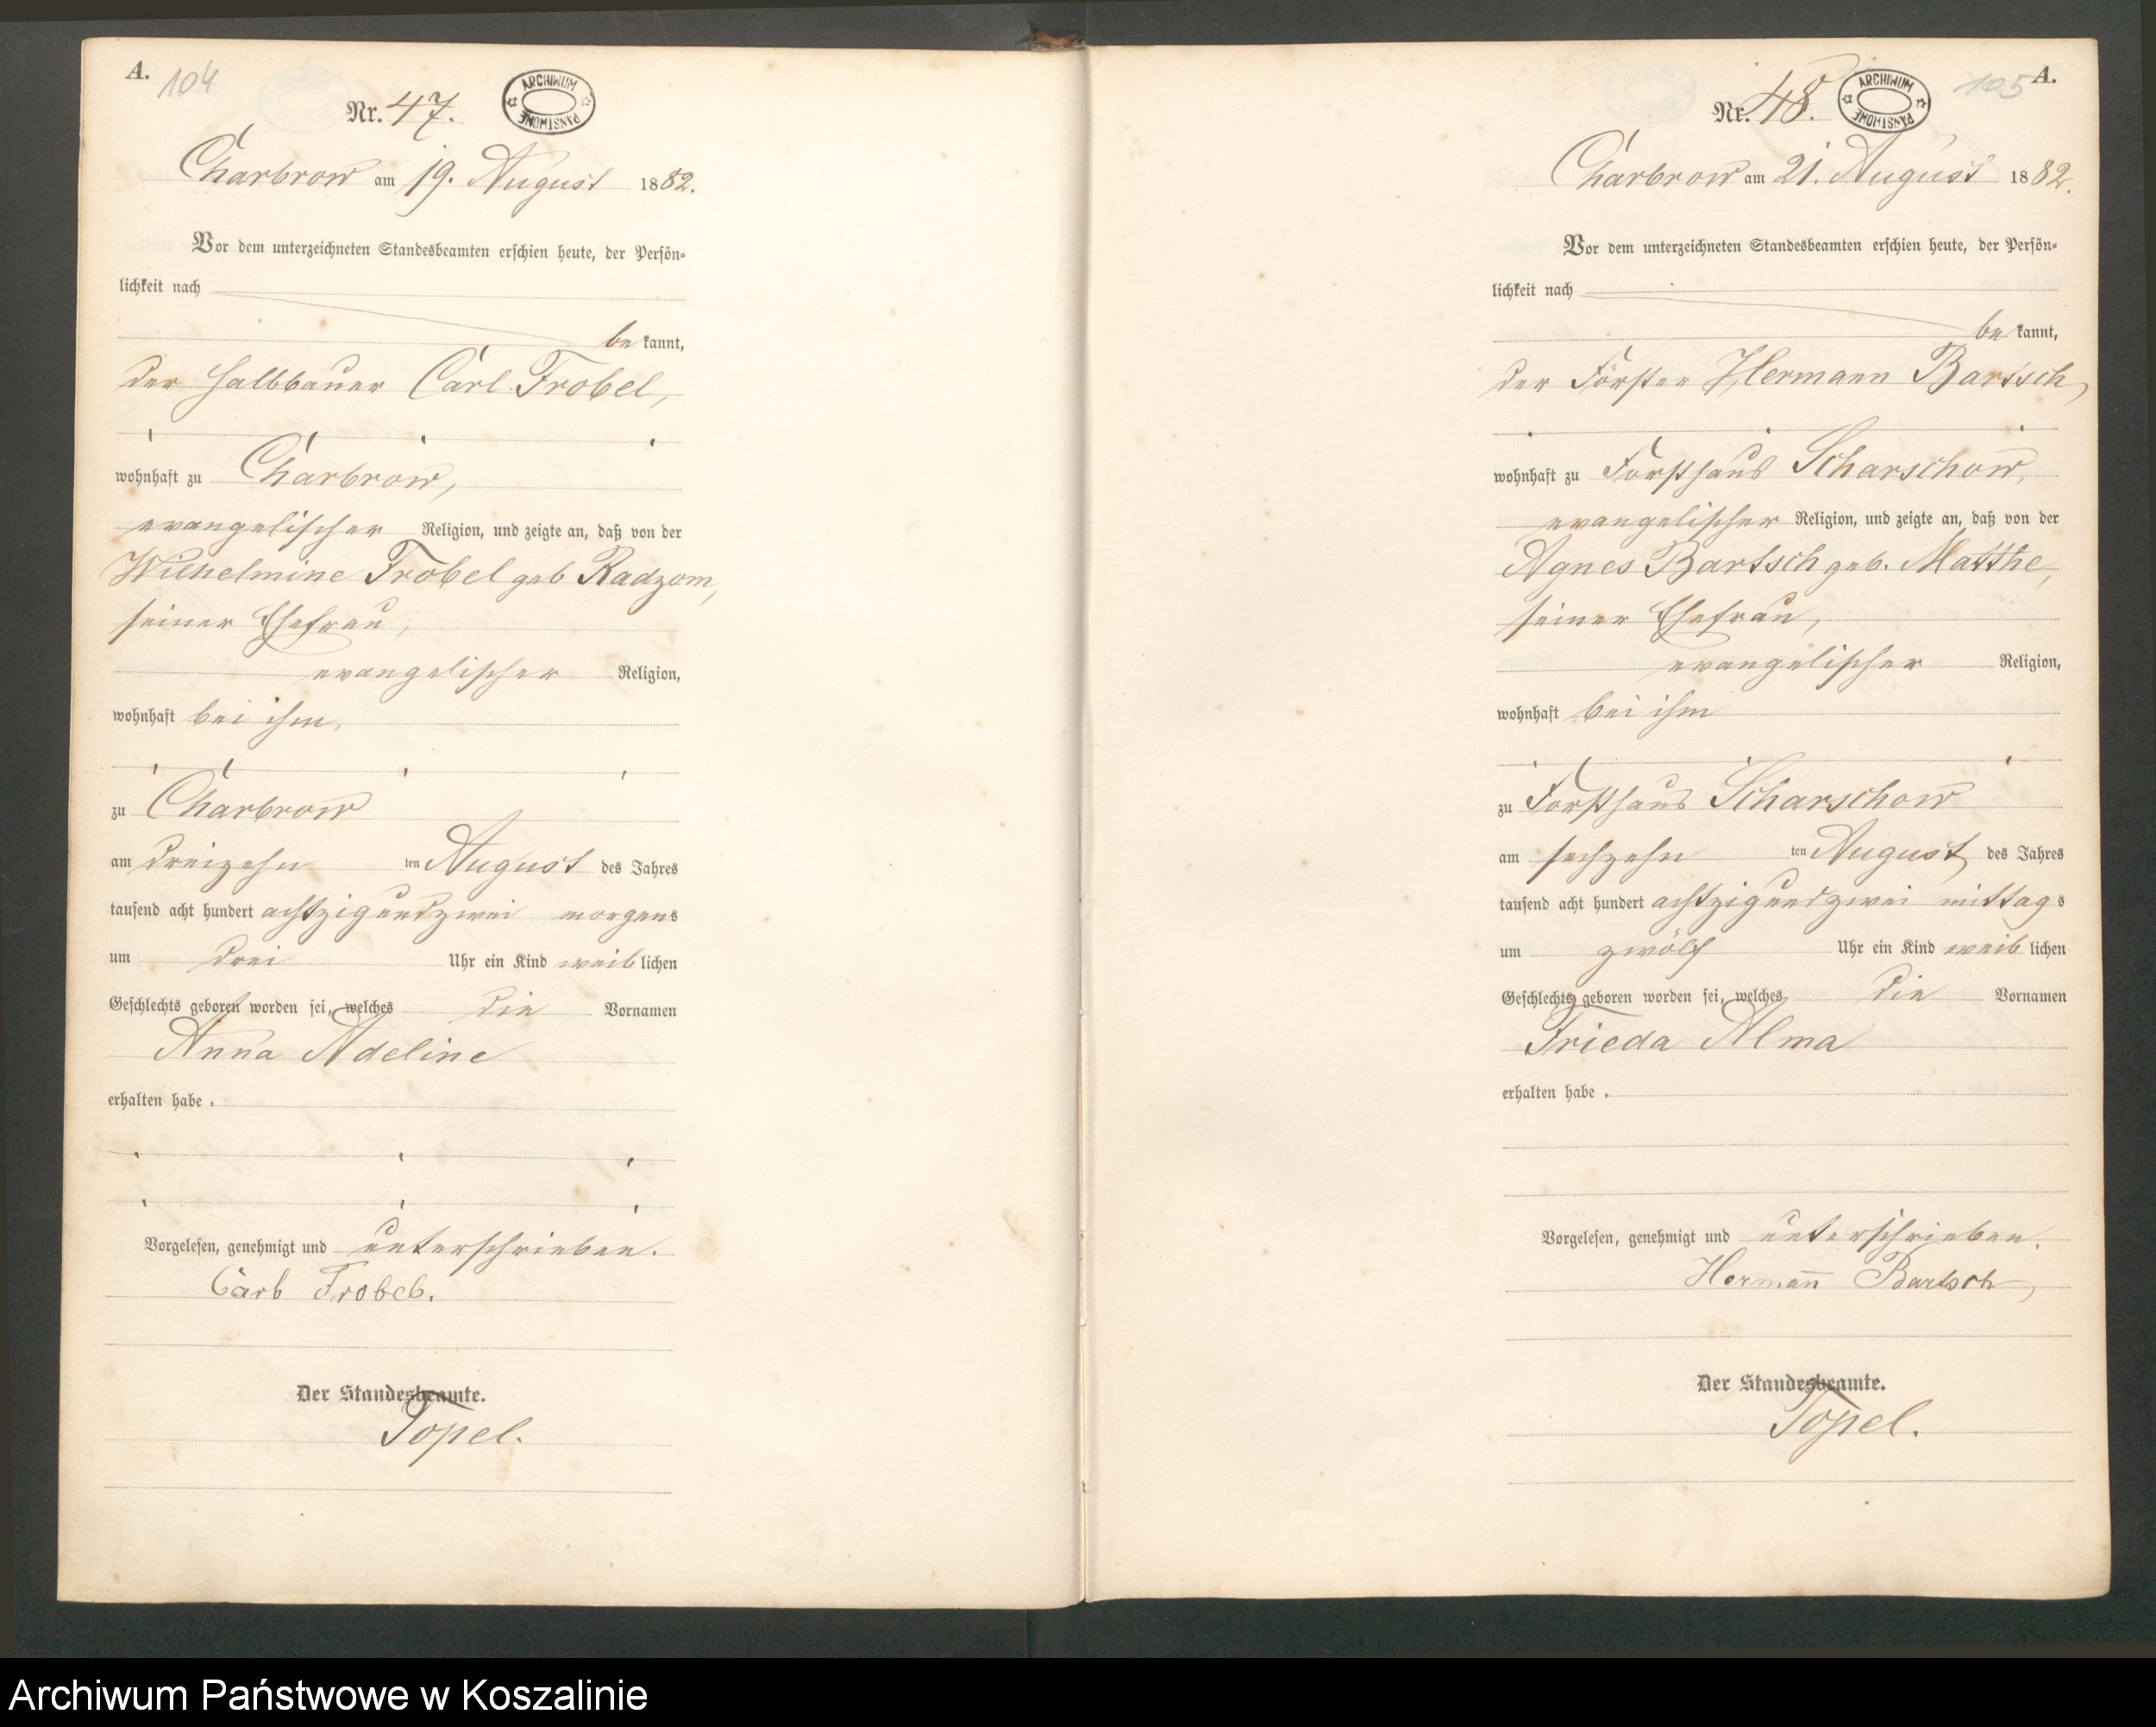 A. 104
Nr. 47.
ARCHIWUM PAŃSTWOWE
Charbrow am 19. August 1882.
Vor dem unterzeichneten Standesbeamten erschien heute, der Persön-
lichkeit nach
be kannt,
der Halbbauer Carl Trobel,
wohnhaft zu Charbrow,
evangelischer Religion, und zeigte an, daß von der
Wilhelmine Trobel geb Radzom,
seiner Ehefrau,
evangelischer Religion,
wohnhaft bei ihm,
zu Charbrow
am dreizehn ten August des Jahres
tausend acht hundert achtzigundzwei morgens
um drei Uhr ein Kind weib lichen
Geschlechts geboren worden sei, welches die Vornamen
Anna Adeline
erhalten habe .
Vorgelesen, genehmigt und unterschrieben.
Carl Trobel.
Der Standesbeamte.
Topel.
105 A.
Nr. 48.
ARCHIWUM PAŃSTWOWE
Charbrow am 21. August 1882.
Vor dem unterzeichneten Standesbeamten erschien heute, der Persön-
lichkeit nach
be kannt,
der Förster Hermann Bartsch,
wohnhaft zu Forsthaus Scharschow,
evangelischer Religion, und zeigte an, daß von der
Agnes Bartsch geb. Matthe,
seiner Ehefrau,
evangelischer Religion,
wohnhaft bei ihm
zu Forsthaus Scharschow
am sechzehn ten August des Jahres
tausend acht hundert achtzigundzwei mittags
um zwölf Uhr ein Kind weib lichen
Geschlechts geboren worden sei, welches die Vornamen
Frieda Alma
erhalten habe .
Vorgelesen, genehmigt und unterschrieben.
Hermann Bartsch,
Der Standesbeamte.
Topel.
Archiwum Państwowe w Koszalinie